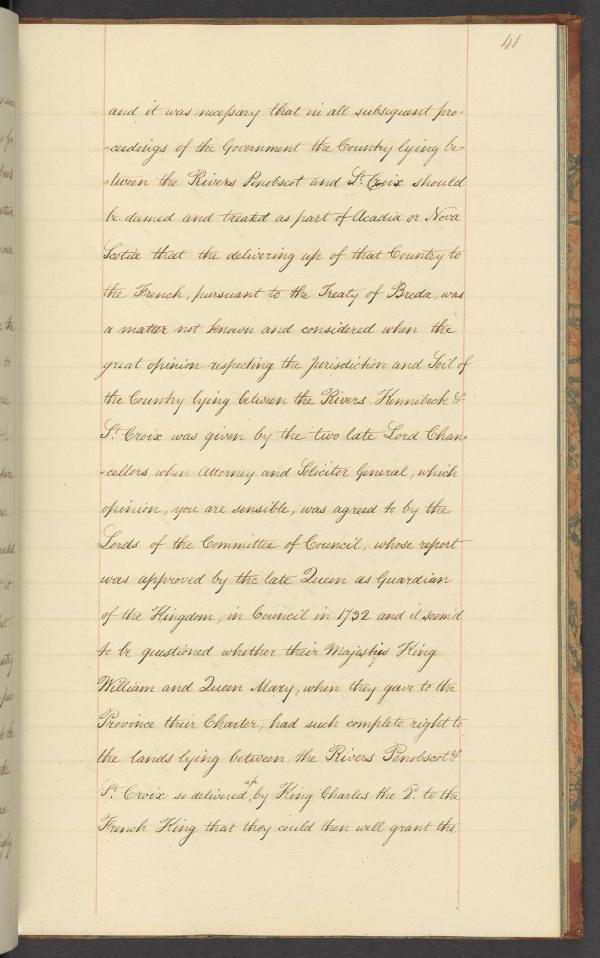 41
and it was necessary that in all subsequent pro=
=ceedings of the Government the Country lying be=
=tween the Rivers Penobscot and St. Croix should
be deemed and treated as part of Acadia or Nova
Scotia that the delivering up of that Country to
the French, pursuant to the Treaty of Breda, was
a matter not known and considered when the
great opinion respecting the Jurisdiction and Soil of
the Country lying between the Rivers Kennebeck &
St. Croix was given by the two late Lord Chan=
=cellors when Attorney and Solicitor General, which
opinion, you are sensible, was agreed to by the
Lords of the Committee of Council, whose report
was approved by the late Queen as Guardian
of the Kingdom, in Council in 1732 and it seem'd
to be questioned whether their Majesties King
William and Queen Mary, when they gave to the
Province their Charter, had such complete right to
the lands lying between the Rivers Penobscot &
St. Croix so delivered up by King Charles the 2d. to the
French King that they could then well grant the